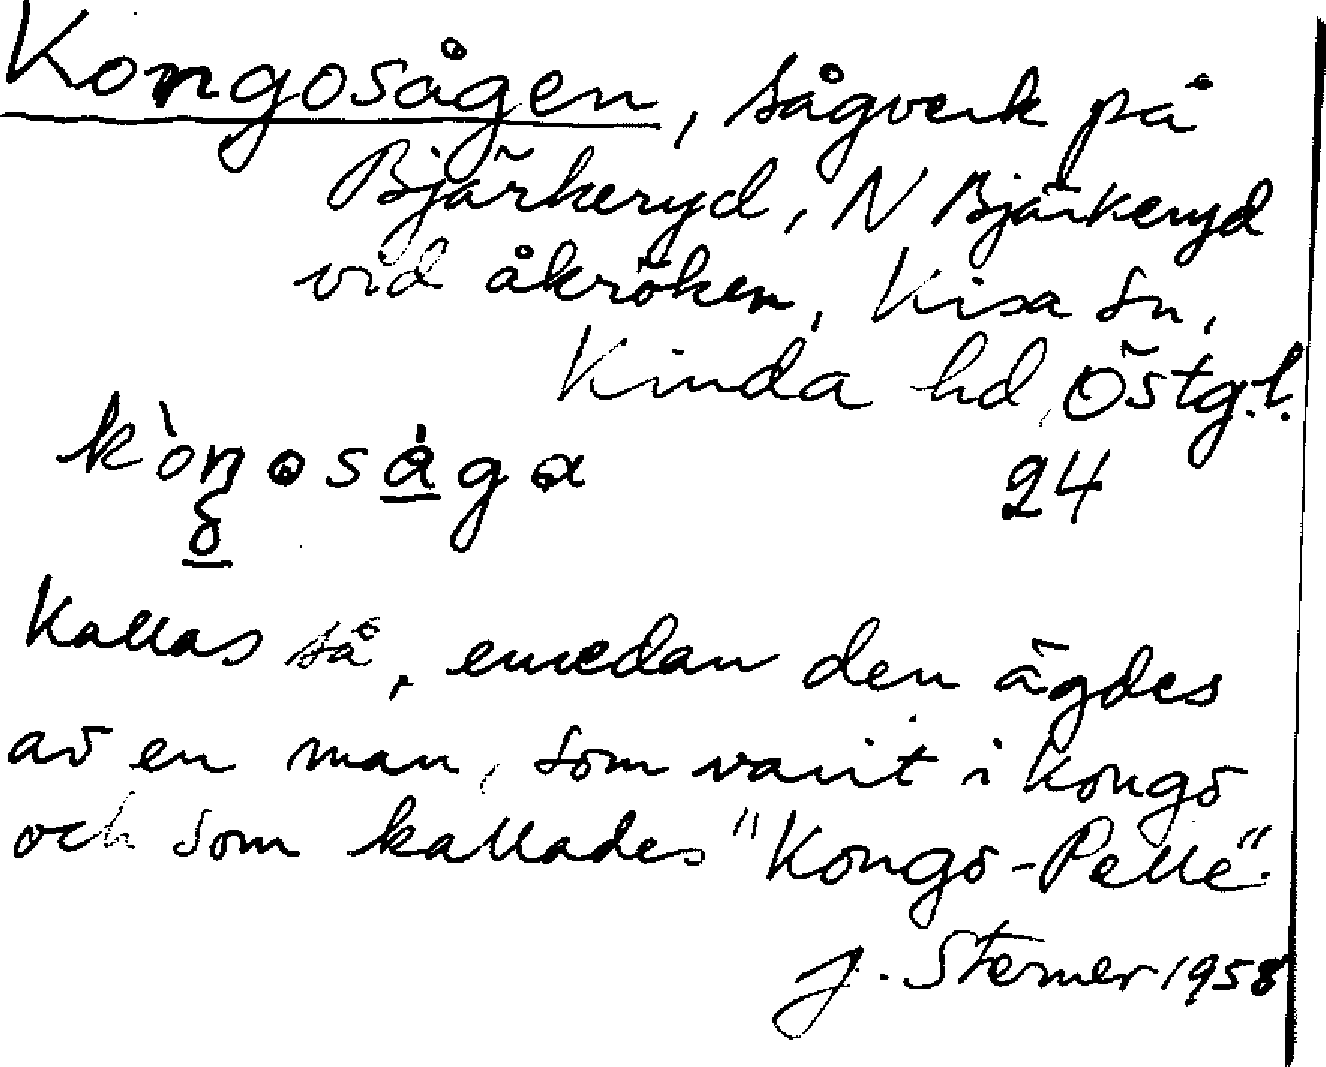 Kongosågen, sågverk på
Bjärkeryd, N Bjärkeryd
vid åkröken, Kisa sn,
Kinda hd, Östg.l.
24
Kallas så, emedan den ägdes
av en man, som varit i Kongo
och som kallades "Kongo-Pelle".
J. Sterner 1958